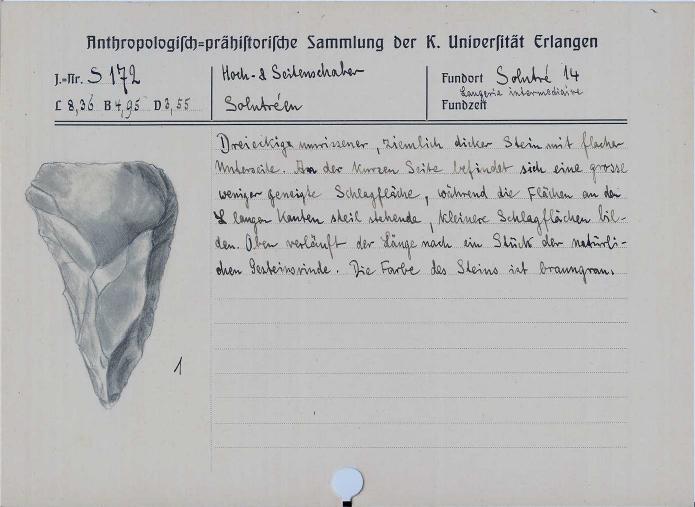 Anthropologisch=prähistorische Sammlung der K. Universität Erlangen
J.=Nr. S 172
L 8,36 B 4,95 D 3,55
Hoch- & Seitenschaber
Solutréen
Fundort Solutré 14
Laugerie intermédiaire
Fundzeit
Dreieckig umrissener, ziemlich dicker Stein mit flacher
Unterseite. An der kurzen Seite befindet sich eine grosse
weniger geneigte Schlagfläche, während die Flächen an den
2 langen Kanten steil stehende, kleinere Schlagflächen bil-
den. Oben verläuft der Länge nach ein Stück der natürli-
chen Gesteinsrinde. Die Farbe des Steins ist braungrau.
1